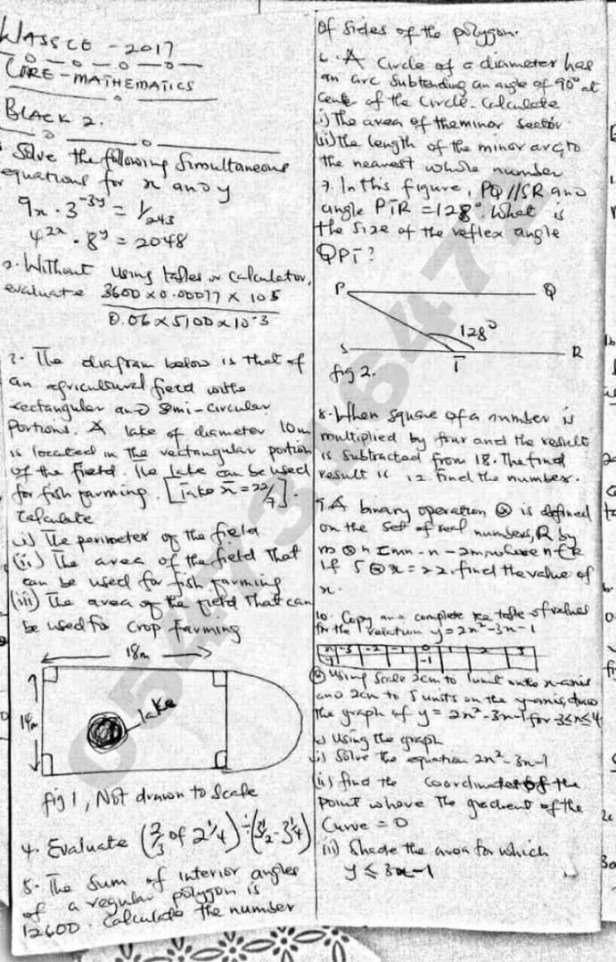 WASSCE - 2017
CORE-MATHEMATICS
BLACK 2.
Solve the following Simultaneous
equations for x and y
9x · 3^-3y = 1/243
4^2x · 8^y = 2048
2. Without using tables or calculator,
evaluate 3600 x 0.00077 x 105
0.06 x 5100 x 10^-3
3. The diagram below is that of
an agricultural field with
rectangular and Semi-circular
Portions. A lake of diameter 10m
is located in the rectangular portion
of the field. The Lake can be used
for fish farming. [Take π = 22/7].
Calculate
(i) The perimeter of the field
(ii) The area of the field That
can be used for fish farming
(iii) The area of the field That can
be used for crop farming
18m
14m
lake
fig 1, Not drawn to Scale
4. Evaluate (2/3 of 2 1/4) ÷ (3 1/2 - 3 1/4)
5. The Sum of interior angles
of a regular polygon is
12600. Calculate the number
Of sides of the polygon.
6. A Circle of a diameter has
an arc Subtending an angle of 90° at
Center of the Circle. Calculate
i) The area of the minor sector
(ii) the length of the minor arc, to
the nearest whole number
7. In this figure, PQ // SR and
angle PTR = 128°. What is
the size of the reflex angle
QPT?
P
Q
128°
S
T
R
fig 2.
8. When Square of a number is
multiplied by four and the result
is Subtracted from 18. The final
result is 12. Find the number.
9. A binary operation ⊗ is defined
on the Set of real numbers, R by
m ⊗ n = mn - n - 2m, where n ∈ R
If 5 ⊗ x = 22. find the value of
x.
10. Copy and complete the table of values
for the relation y = 2x² - 3x - 1
x -3 -2 -1 0 1 2 3
y -1
Using Scale 2cm to 1 unit on the x-axis
and 2cm to 5 units on the y-axis, draw
the graph of y = 2x² - 3x - 1 for -3≤x≤4
Using the graph
i) Solve the equation 2x² - 3x - 1
(ii) find the coordinates of the
point where The gradient of the
Curve = 0
iii) Shade the area for which
y ≤ 3x - 1
0547316472